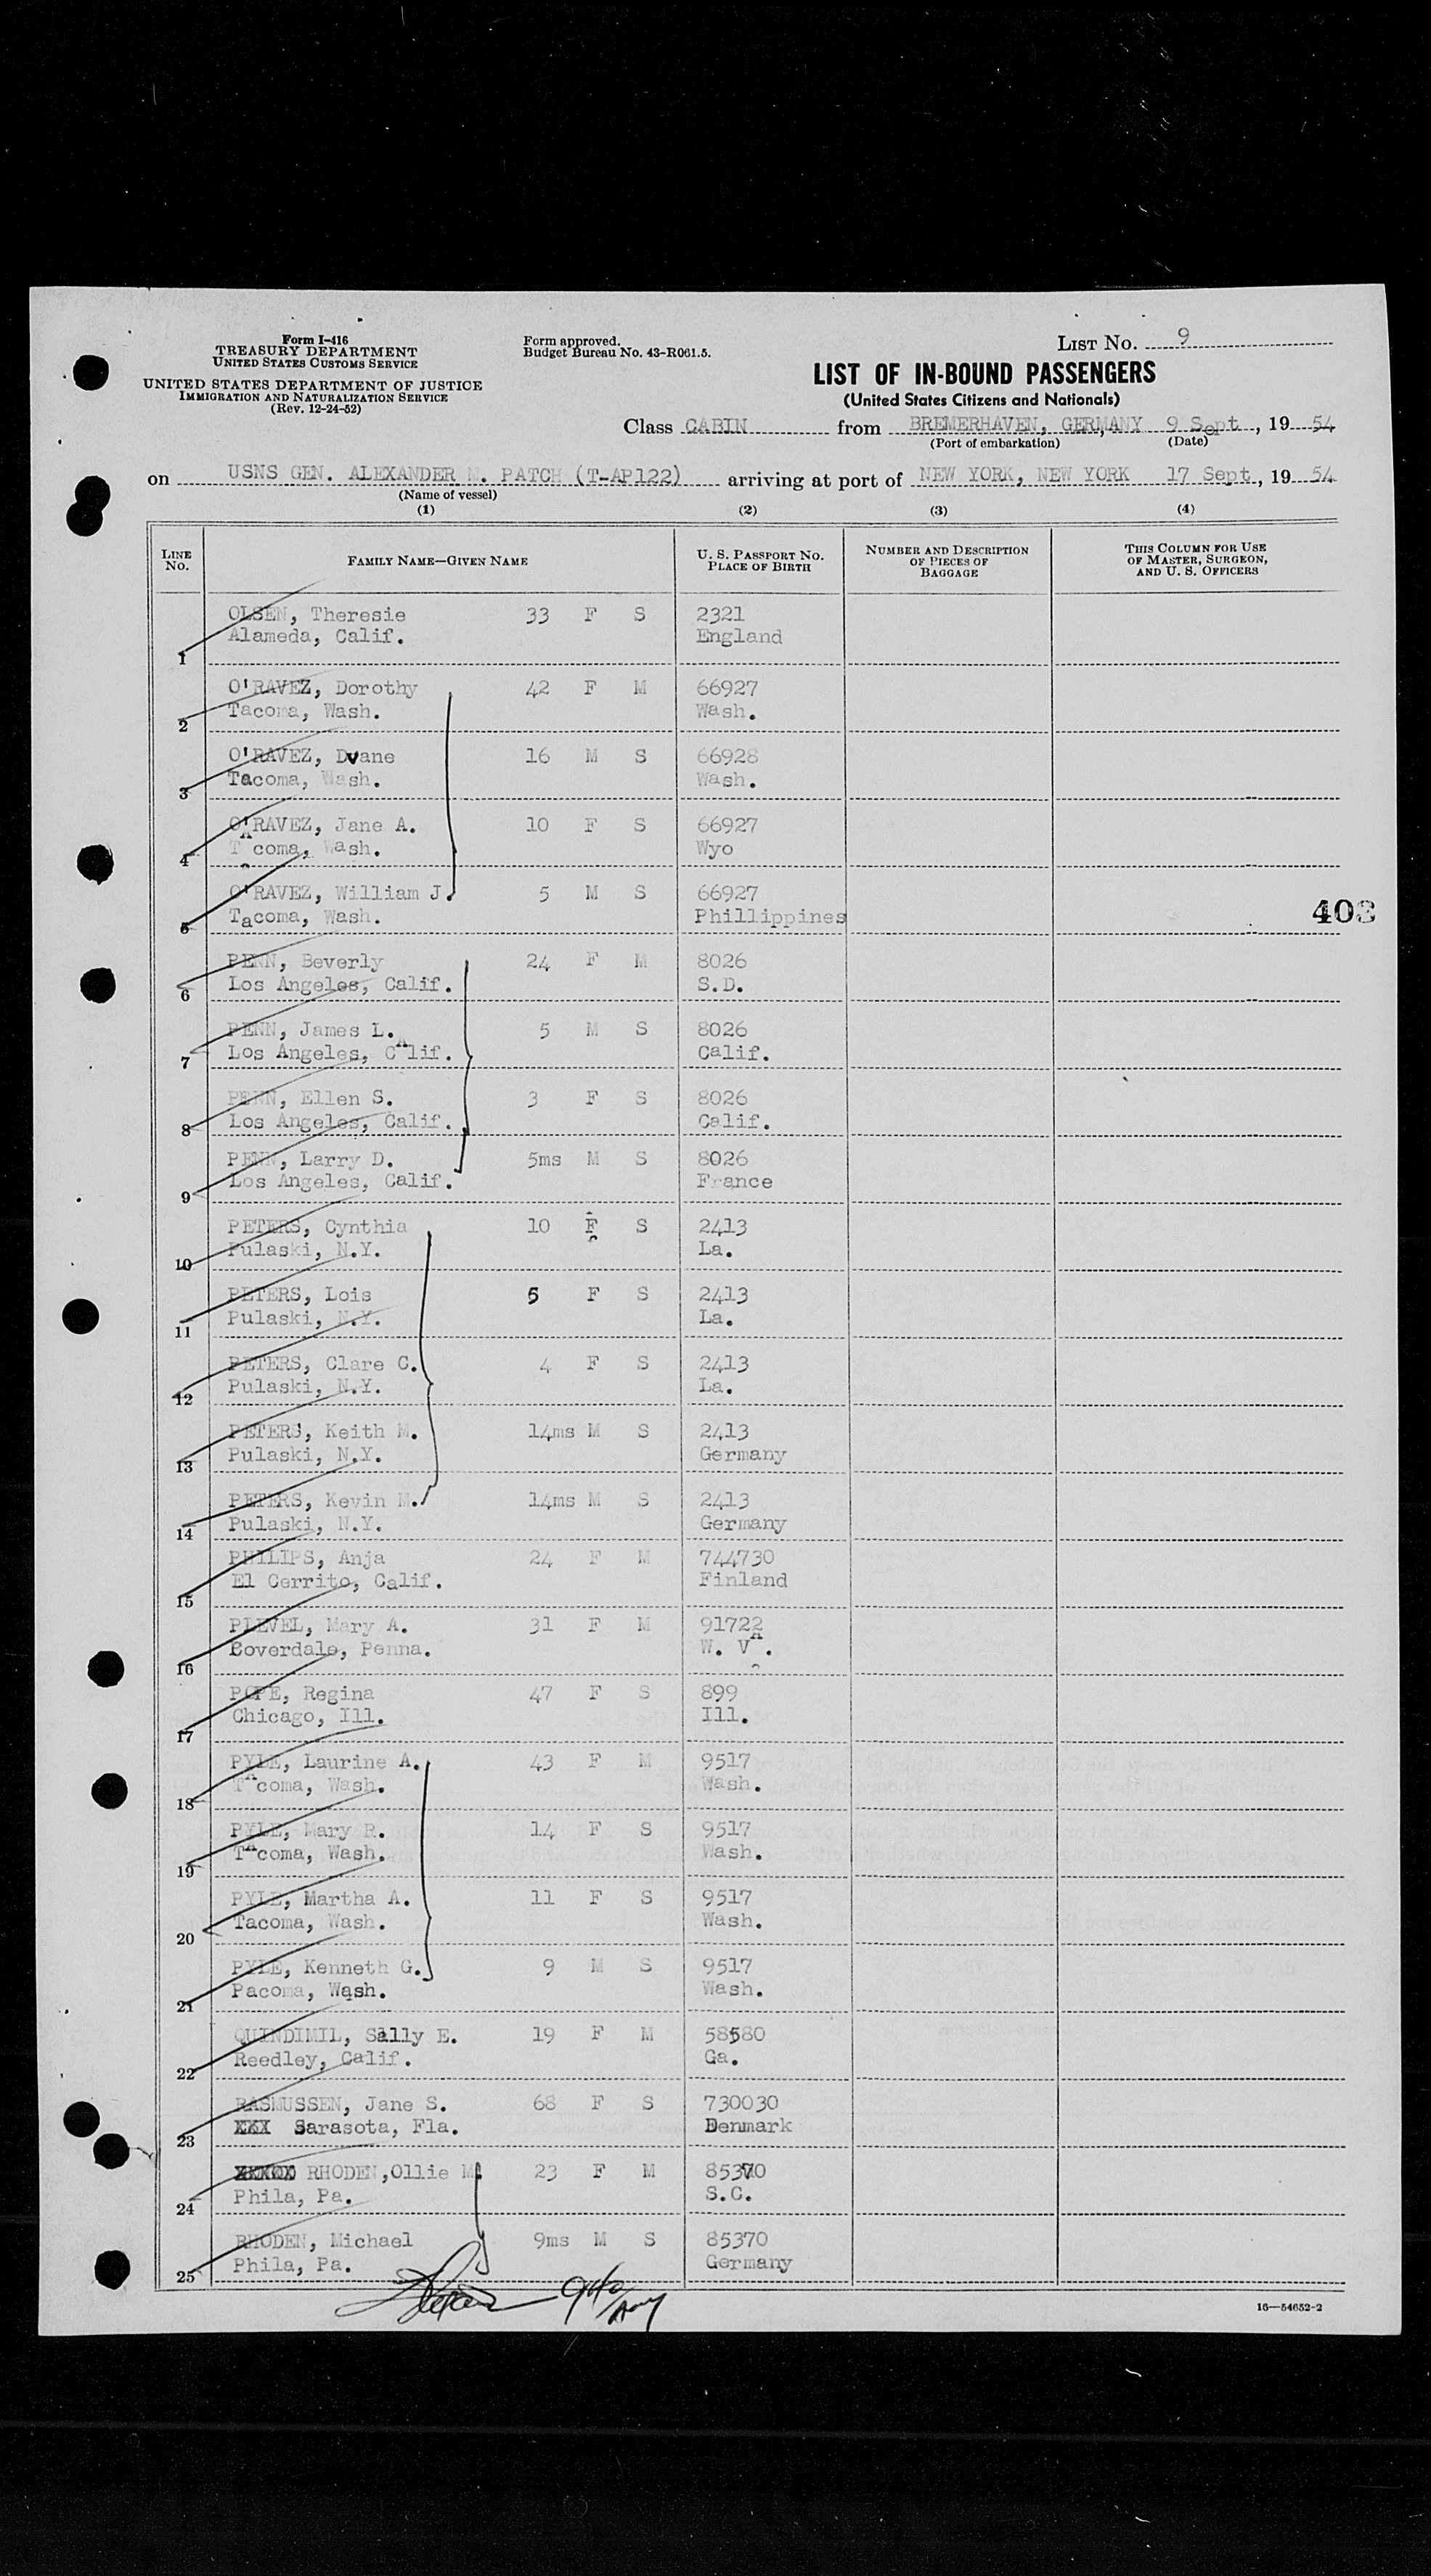 Form I-416
TREASURY DEPARTMENT
UNITED STATES CUSTOMS SERVICE
UNITED STATES DEPARTMENT OF JUSTICE
IMMIGRATION AND NATURALIZATION SERVICE
(Rev. 12-24-52)
Form approved.
Budget Bureau No. 43-R061.5.
LIST NO. 9
LIST OF IN-BOUND PASSENGERS
(United States Citizens and Nationals)
Class CABIN from BREMERHAVEN, GERMANY 9 Sept, 19 54
(Port of embarkation) (Date)
on USNS GEN. ALEXANDER M. PATCH (T-AP122) arriving at port of NEW YORK, NEW YORK 17 Sept, 19 54
(Name of vessel)
(1) (2) (3) (4)
LINE NO. FAMILY NAME—GIVEN NAME U. S. PASSPORT NO. PLACE OF BIRTH NUMBER AND DESCRIPTION OF PIECES OF BAGGAGE THIS COLUMN FOR USE OF MASTER, SURGEON, AND U. S. OFFICERS
OLSEN, Theresie 33 F S 2321
1 Alameda, Calif. England
O'RAVEZ, Dorothy 42 F M 66927
2 Tacoma, Wash. Wash.
O'RAVEZ, Dvane 16 M S 66928
3 Tacoma, Wash. Wash.
O'RAVEZ, Jane A. 10 F S 66927
4 TAcoma, Wash. Wyo
O'RAVEZ, William J. 5 M S 66927
5 Tacoma, Wash. Phillippines
403
PENN, Beverly 24 F M 8026
6 Los Angeles, Calif. S.D.
PENN, James L. 5 M S 8026
7 Los Angeles, CAlif. Calif.
PENN, Ellen S. 3 F S 8026
8 Los Angeles, Calif. Calif.
PENN, Larry D. 5ms M S 8026
9 Los Angeles, Calif. France
PETERS, Cynthia 10 F S 2413
10 Pulaski, N.Y. La.
PETERS, Lois 5 F S 2413
11 Pulaski, N.Y. La.
PETERS, Clare C. 4 F S 2413
12 Pulaski, N.Y. La.
PETERS, Keith M. 14ms M S 2413
13 Pulaski, N.Y. Germany
PETERS, Kevin M. 14ms M S 2413
14 Pulaski, N.Y. Germany
PHILIPS, Anja 24 F M 744730
15 El Cerrito, Calif. Finland
PLEVEL, Mary A. 31 F M 91722
16 Coverdale, Penna. W. VA.
POPE, Regina 47 F S 899
17 Chicago, Ill. Ill.
PYLE, Laurine A. 43 F M 9517
18 TAcoma, Wash. Wash.
PYLE, Mary R. 14 F S 9517
19 Tacoma, Wash. Wash.
PYLE, Martha A. 11 F S 9517
20 Tacoma, Wash. Wash.
PYLE, Kenneth G. 9 M S 9517
21 Pacoma, Wash. Wash.
QUINDIMIL, Sally E. 19 F M 58580
22 Reedley, Calif. Ga.
RASMUSSEN, Jane S. 68 F S 730030
23 XXX Sarasota, Fla. Denmark
RHODEN,Ollie M. 23 F M 85370
24 Phila, Pa. S.C.
RHODEN, Michael 9ms M S 85370
25 Phila, Pa. Germany
16—54652-2